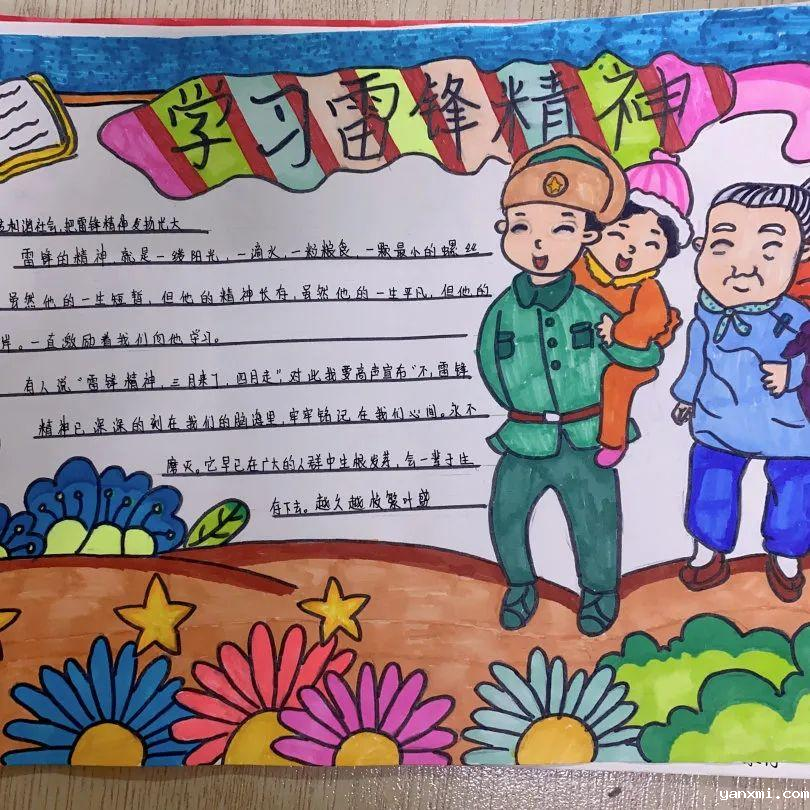 学习雷锋精神
和谐社会,把雷锋精神发扬光大
雷锋的精神 就是一缕阳光,一滴水,一粒粮食,一颗最小的螺丝
虽然他的一生短暂,但他的精神长存,虽然他的一生平凡,但他的
一直激励着我们向他学习。
有人说"雷锋精神,三月来了,四月走"对此我要高声宣布"不,雷锋
精神已深深的刻在我们的脑海里,牢牢铭记在我们心间。永不
磨灭。它早已在广大的人群中生根发芽,会一辈子生
存下去。越久越枝繁叶
yanxmi.com